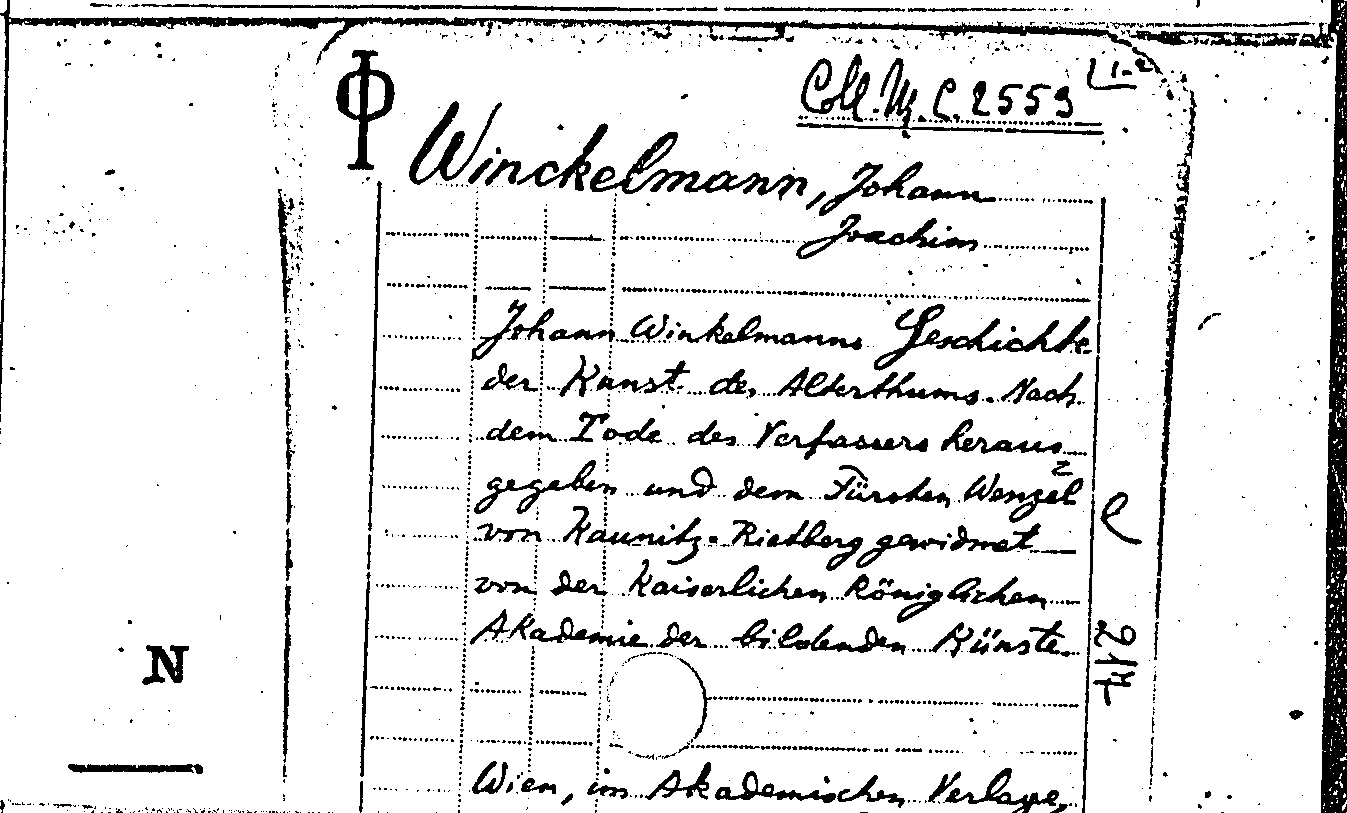 Φ
Coll. M. C. 2553 1-2
Winckelmann, Johann
Joachim
Johann Winkelmanns Geschichte
der Kunst des Alterthums. Nach
dem Tode des Verfassers heraus
gegeben und dem Fürsten Wenzel
von Kaunitz-Rietberg gewidmet
von der Kaiserlichen Königlichen
Akademie der bildenden Künste.
Wien, im Akademischen Verlage,
N